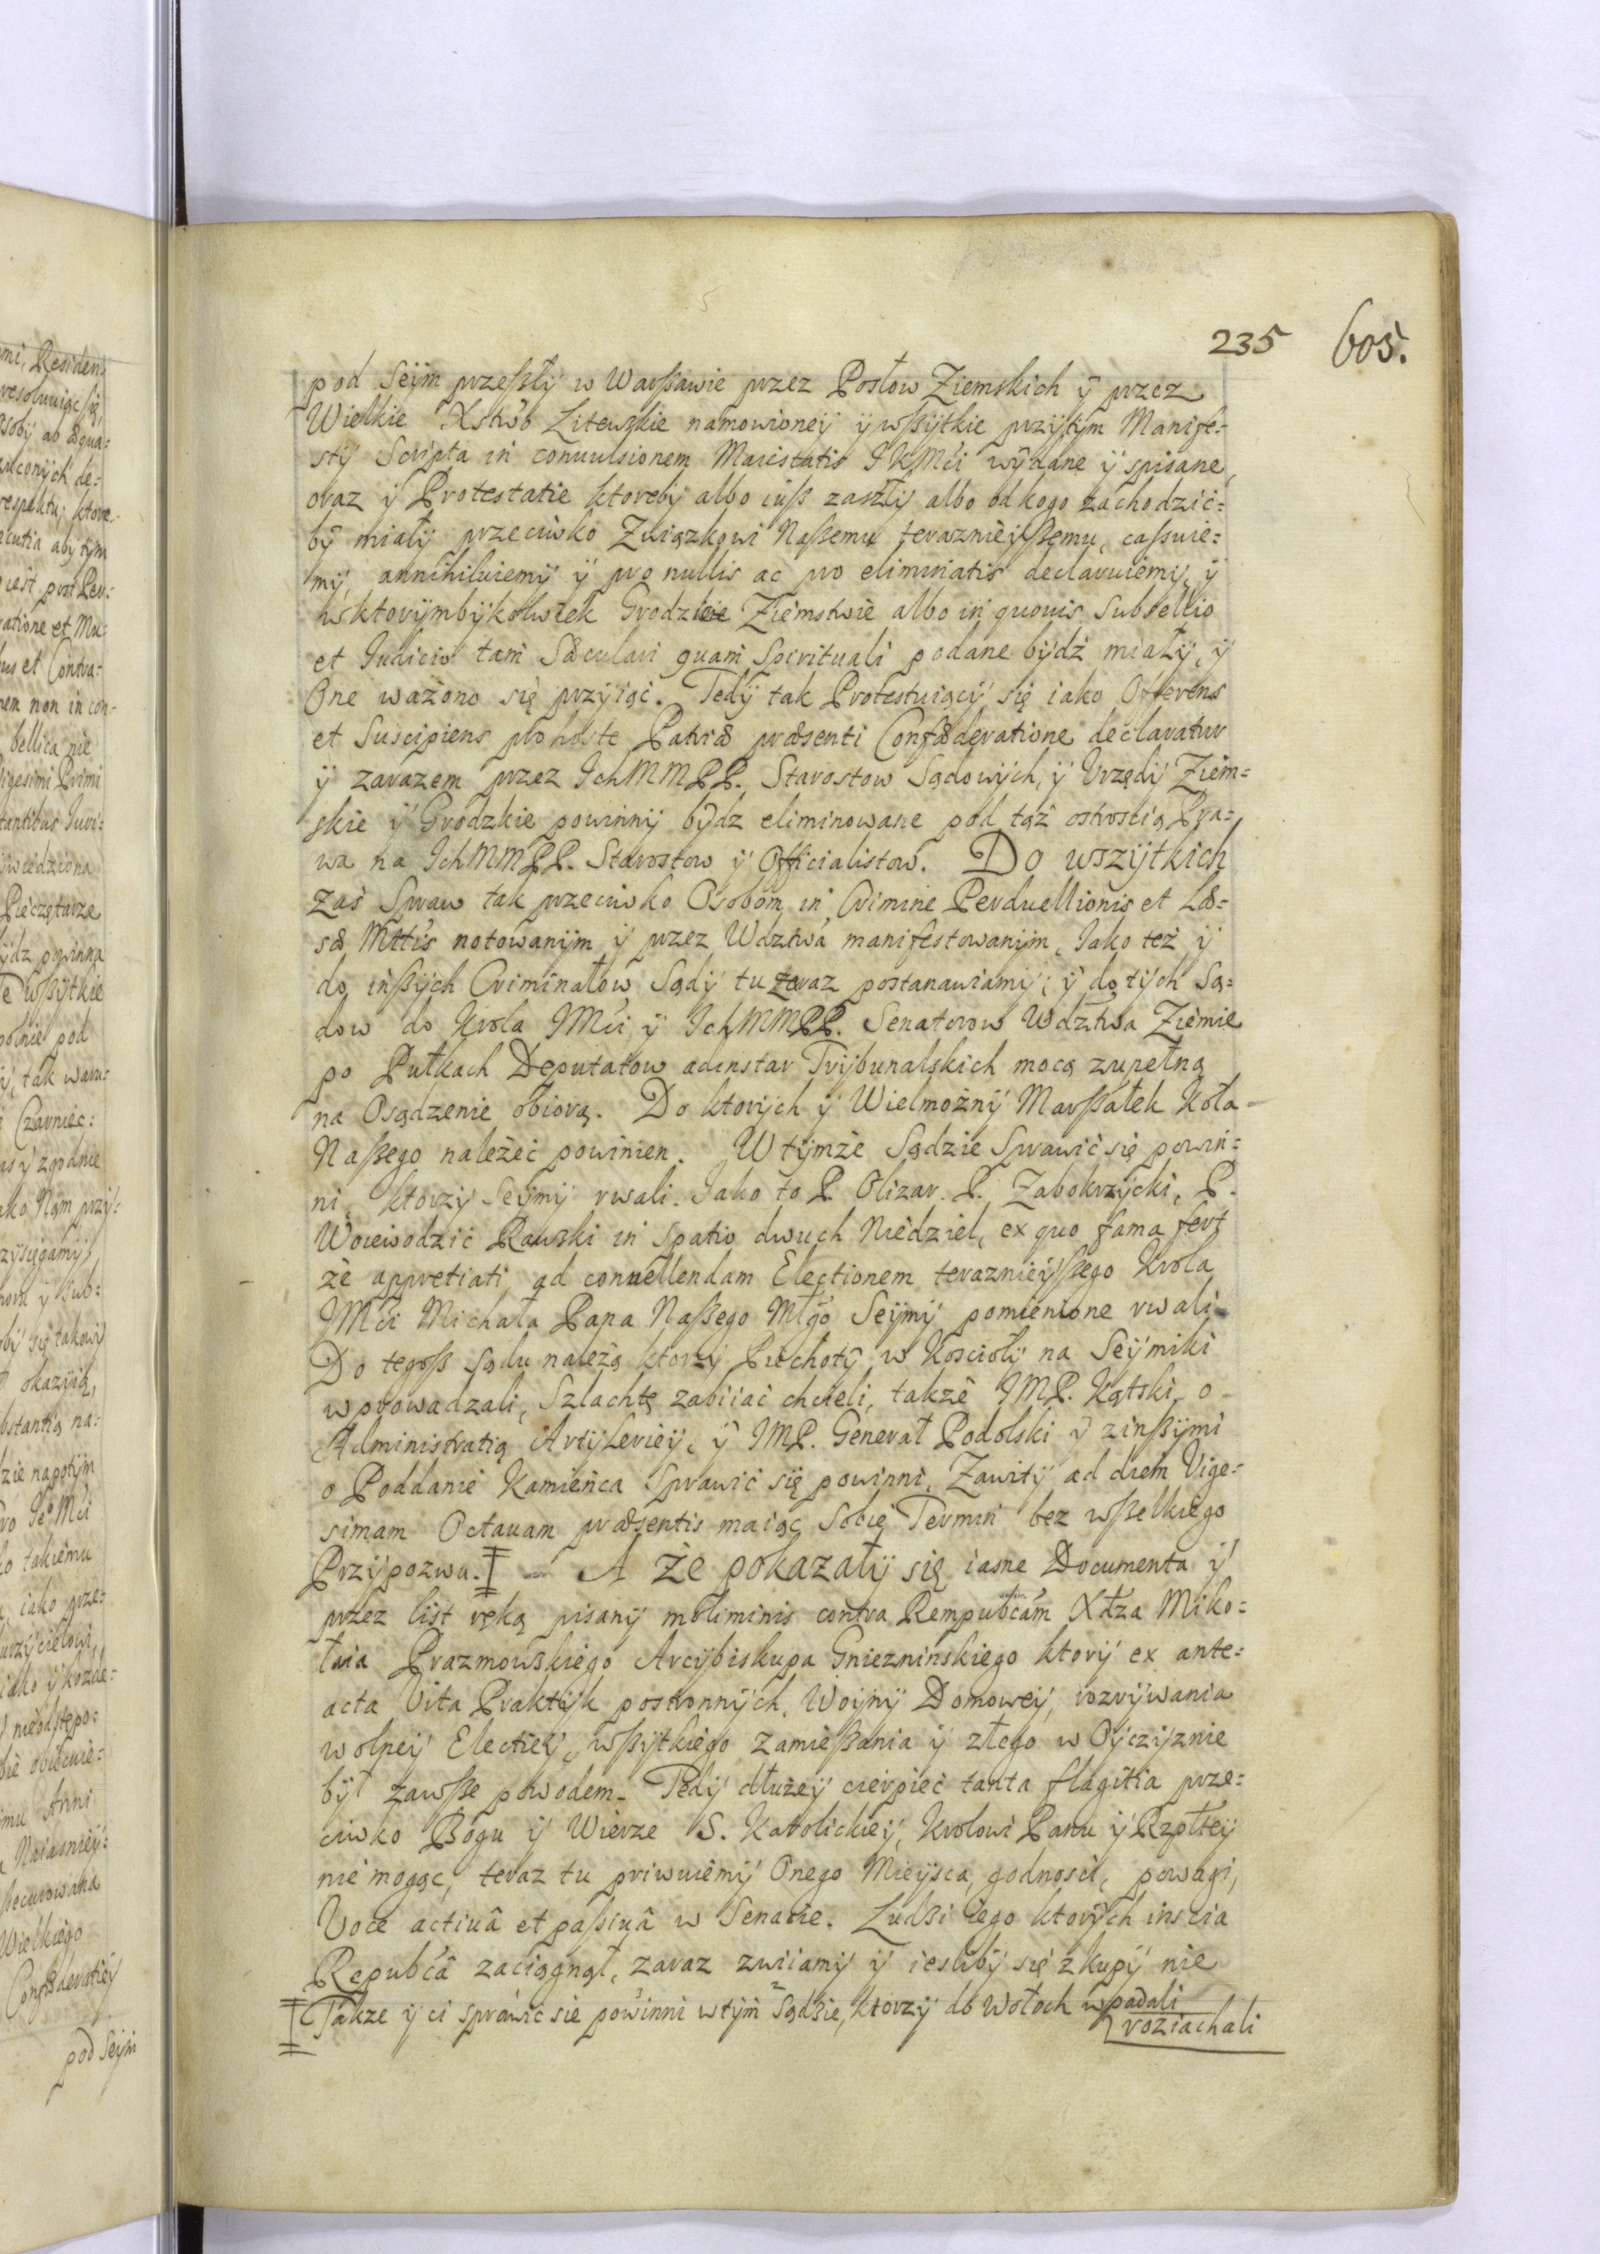 235 605.
pod Seÿm przeßłÿ w Warßawie przez Posłow Ziemskich ÿ przez
Wielkie Xstwo Litewskie namowioneÿ ÿ wßÿtkie przÿtÿm Manife=
stÿ Scripta in conuulsionem Maiestatis JKMći wÿdane ÿ spisane,
oraz ÿ Protestatie ktorebÿ albo iuß zaszłÿ albo od kogo zachodzić=
bÿ miałÿ przeciwko Związkowi Naßemu terazniėÿßemu, caßuie=
mÿ, annihiluiemÿ ÿ pro nullis ac pro eliminatis declaruiemÿ, ÿ
wktorÿmbÿkolwiek Grodzkie Ziemstwie albo in quouis Subsellio
et Iudicio tam Sæculari quam Spirituali podane bÿdź miałÿ, ÿ
One ważono się przÿiąć. Tedÿ tak Protestuiącÿ się iako Offerens
et Suscipiens pro hoste Patriæ præsenti Confæderatione declaratur
ÿ zarazem przez IchMMPP. Starostow Sądowÿch, ÿ Vrzędÿ Ziem=
skie ÿ Grodzkie powinnÿ bÿdz eliminowane pod tąż ostrostią Pra=
wa na IchMMPP. Starostow ÿ Officialistow. Do wszÿtkich
zaś Spraw tak przeciwko Osobom in Crimine Perduellionis et Læ=
sæ Mttis notowanÿm ÿ przez Wdztwa manifestowanÿm, Iako też ÿ
do inßÿch Criminałow Sądÿ tu zaraz postanawiamÿ; ÿ do tÿch Są=
dow do Krola JMći ÿ IchMMPP. Senatorow Wdztwa Ziemie
po Pułkach Deputatow adinstar Trÿbunalskich mocą zupełną
na Osądzenie obiorą. Do ktorÿch ÿ Wielmożnÿ Marßałek Koła
Naßego należeć powinien. Wtÿmże Sądzie Sprawić się powin=
ni, ktorzÿ Seÿmÿ rwali. Iako to P. Olizar. P. Zabokrzÿcki, P.
Woiewodzić Rawski in spatio dwuch Niedziel, ex quo fama fert
że appretiati ad conuellendam Electionem teraznieÿßego Krola
JMći Michała Pana Naßego Młgo Seÿmÿ pomienione rwali
Do tegoß Sądu należą ktorzÿ Piechotÿ w Kosciołÿ na Seÿmiki
wprowadzali, Szlachtę zabiiać chcieli, także JMP. Kątski, o
Administratią Artÿleriėÿ, ÿ JMP. Generał Podolski ÿ zinßÿmi
o Poddanie Kamieńca Sprawić się powinni, Zawitÿ ad diem Vige=
simam Octauam præsentis maiąc Sobie Termin bez wßelkiego
Przÿpozwu. A że pokazałÿ się iasne Documenta ÿ
przez list ręką pisanÿ moliminis contra Rempubćam Xdza Miko=
łaia Prazmowskiego Arcÿbiskupa Gnieznińskiego ktorÿ ex ante=
acta Vita Praktÿk postronnÿch, Woÿnÿ Domoweÿ, rozrÿwania
wolneÿ Electieÿ, wßÿtkiego zamießania ÿ złego w Oÿczÿznie
bÿł zawße powodem. Tedÿ dłużeÿ cierpieć tanta flagitia prze=
ciwko Bogu ÿ Wierze S. Katolickieÿ, Krolowi Panu ÿ Rzpłteÿ
nie mogąc, teraz tu priwuiemÿ Onego Mieÿsca, godności, powagi,
Voce actiuâ et paßiuâ w Senacie. Ludzi iego ktorÿch inscia
Republcâ zaciągnął, zaraz zwiiamÿ ÿ iesliby się z kupÿ nie
Także ÿ ci sprawić sie powinni wtÿm Sądzie, ktorzÿ do Wołoch wpadali
roziachali
mi, Residen
resoluuiąc się,
de=
respektu, ktore
acutia abÿ tÿm
iest post Per=
ratione et Mu=
et Contra=
nem non in con=
bellica nie
Vigesimi Primi
Iuri=
Pieczętarze
bÿdz powinna
wßÿtkie
pod
tak waru=
Czarniec:
ÿ zgodnie
iako Nam przÿ=
ÿ sub=
się takowÿ
okaziją,
na=
napotÿm
Je°Mći
takiemu
iako prze=
iako ÿ
nieodstępo=
Anni
Naiasnieÿ=
Wielkiego
Confæderatieÿ
pod Seÿm